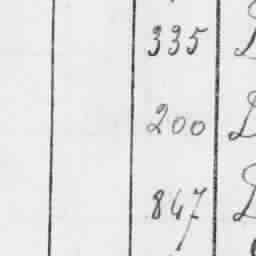 335
200
847